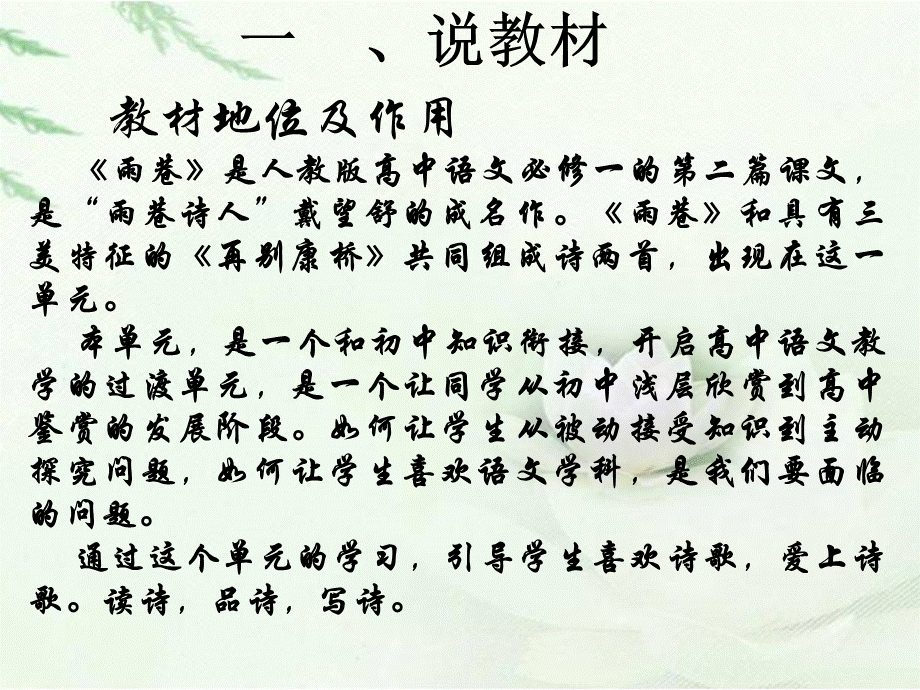 一 、说教材
教材地位及作用
《雨巷》是人教版高中语文必修一的第二篇课文，
是“雨巷诗人”戴望舒的成名作。《雨巷》和具有三
美特征的《再别康桥》共同组成诗两首，出现在这一
单元。
本单元，是一个和初中知识衔接，开启高中语文教
学的过渡单元，是一个让同学从初中浅层欣赏到高中
鉴赏的发展阶段。如何让学生从被动接受知识到主动
探究问题，如何让学生喜欢语文学科，是我们要面临
的问题。
通过这个单元的学习，引导学生喜欢诗歌，爱上诗
歌。读诗，品诗，写诗。